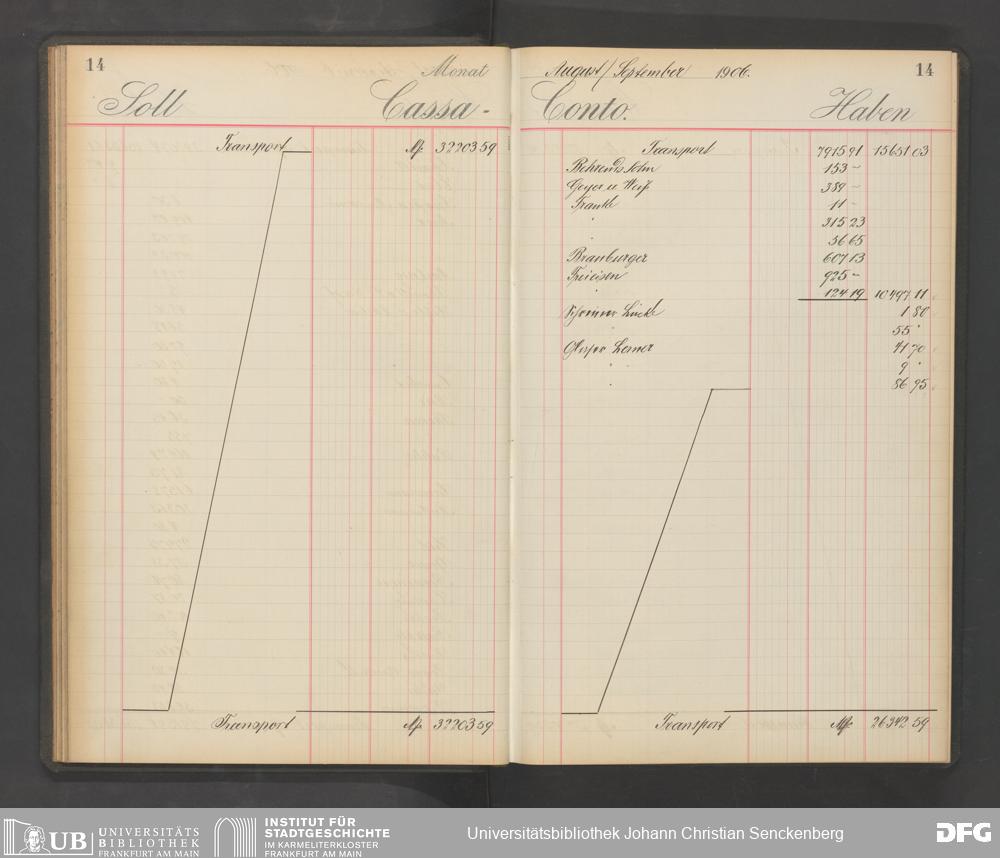 14 Monat August/September 1906. 14
Soll Cassa- Conto. Haben
Transport M. 32203 59
Transport M. 32203 59
Transport 7915 91 15651 03
Behrends Sohn 153 -
Geyer u. Weiß 389 -
Frank 11 -
" 315 23
" 56 65
Bramburger 607 13
925 -
" 124 19 10497 11
Schreiner 1 80
" 55 "
Glaser Lerner 41 70
" 9 "
" 86 95
Transport M. 26342 59
UB UNIVERSITÄTS
BIBLIOTHEK
FRANKFURT AM MAIN
INSTITUT FÜR
STADTGESCHICHTE
IM KARMELITERKLOSTER
FRANKFURT AM MAIN
Universitätsbibliothek Johann Christian Senckenberg
DFG